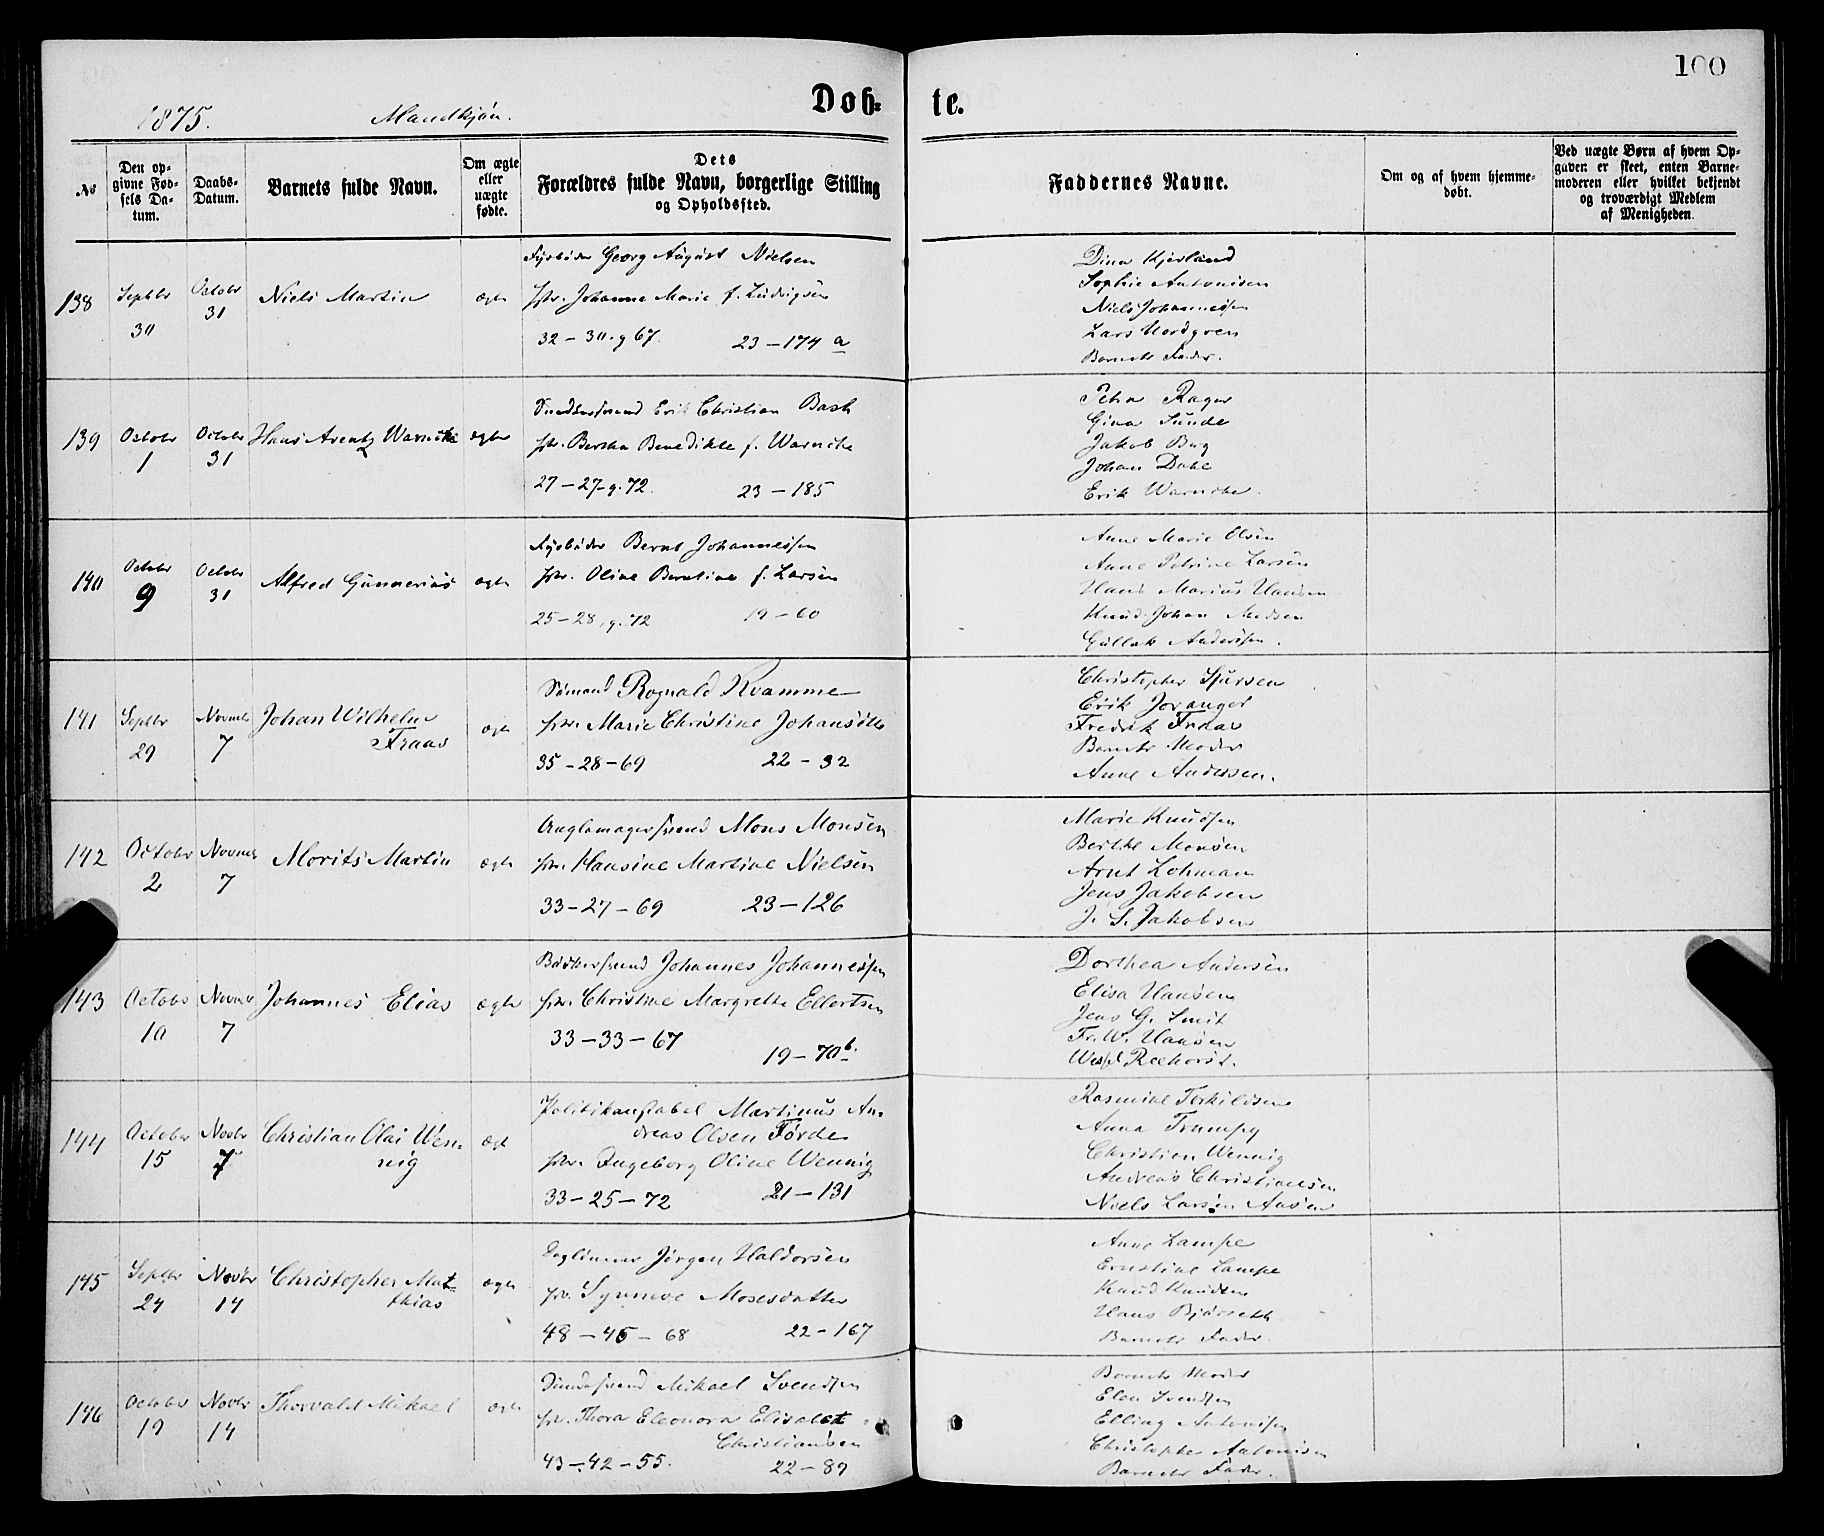 100
1875. Mandkjøn. Døb- te.
No
Den op-
givne Fød-
sels Da-
tum.
Daabs-
Datum.
Barnets fulde Navn.
Om ægte
eller
uægte
fødte.
Dets
Forældres fulde Navn, borgerlige Stilling
og Opholdssted.
Faddernes Navne.
Om og af hvem hjemme-
døbt.
Ved uægte Børn af hvem Op-
gaven er skeet, enten Barne-
moderen eller hvilket bekjendt
og troværdigt Medlem
af Menigheden.
138
Septbr
30
Octobr
31
Niels Martin
ægte
Fyrbøder Georg August Nielsen
Johanne Marie f. Ludvigsen
32 - 30. g 67. 23 - 174 a
Dina Kjerland
Sophie Antonisen
Niels Johannessen
Lars Nordgreen
Barnets Fader.
139
Octobr
1
Octobr
31
Hans Arentz Warncke
ægte
Snedkersvend Erik Christian Basth
Bertha Benedikte f. Warncke
27 - 27 - g. 72. 23 - 185
Petra Rager
Gina Sunde
Jakob Berg
Johan Dahl
Erik Warncke.
140
Octobr
9
Octobr
31
Alfred Gunnerius
ægte
Fyrbøder Bernt Johannessen
Oline Berntine f. Larsen
25 - 28, g. 72 19 - 60
Anne Marie Olsen
Anne Petrine Larsen
Hans Marius Hansen
Knud Johan Madsen
Gullak Anderssen.
141
Septbr
29
Novmbr
7
Johan Wilhelm
Fraas
ægte
Sømand Rognald Kvamme
Marie Christine Johansdtr
35 - 28 - 69 22 - 32
Christopher Sjursen
Erik Joranger
Fredrik Fraas
Barnets Moder
Anne Andersen.
142
Octobr
2
Novmbr
7
Morits Martin
ægte
Mons Monsen
Hansine Martine Nielsen
33 - 27 - 69 23 - 126
Marie Knudsen
Berthe Monsen
Arnt Lohman
Jens Jakobsen
J. S. Jakobsen
143
Octobr
10
Novmbr
7
Johannes Elias
ægte
Bødkersvend Johannes Johannessen
Christine Margrethe Ellertsen
33 - 33 - 67
19 - 70 b.
Dorthea Andersen
Elisa Hansen
Jens G. Smit
Fr. W. Hansen
Reehorst.
144
Octobr
15
Novbr
7
Christian Olai Wen-
nig
ægte
Politikonstabel Martinus An-
dreas Olsen Førde
Ingeborg Oline Wennig
33 - 25 - 72 21 - 131
Rasmine Terkildsen
Anna Trumpy
Christian Wennig
Andreas Christiansen
Niels Larsen Aasen
145
Septbr
24
Novbr
14
Christopher Mat-
thias
ægte
Daglønner Jørgen Haldorsen
Synneve Mosesdatter
48 - 45 - 68 22 - 167
Anne Lampe
Ernstine Lampe
Knud Knudsen
Hans Bjørseth
Barnets Fader.
146
Octobr
19
Novbr
14
Thorvald Mikael
ægte
Mikael Svendsen
Thora Eleonora Elisabet
Christiansen
43 - 42 - 55. 22 - 89
Barnets Moder
Elen Svendsen
Elling Antonisen
Christopher Antonisen
Barnets Fader.